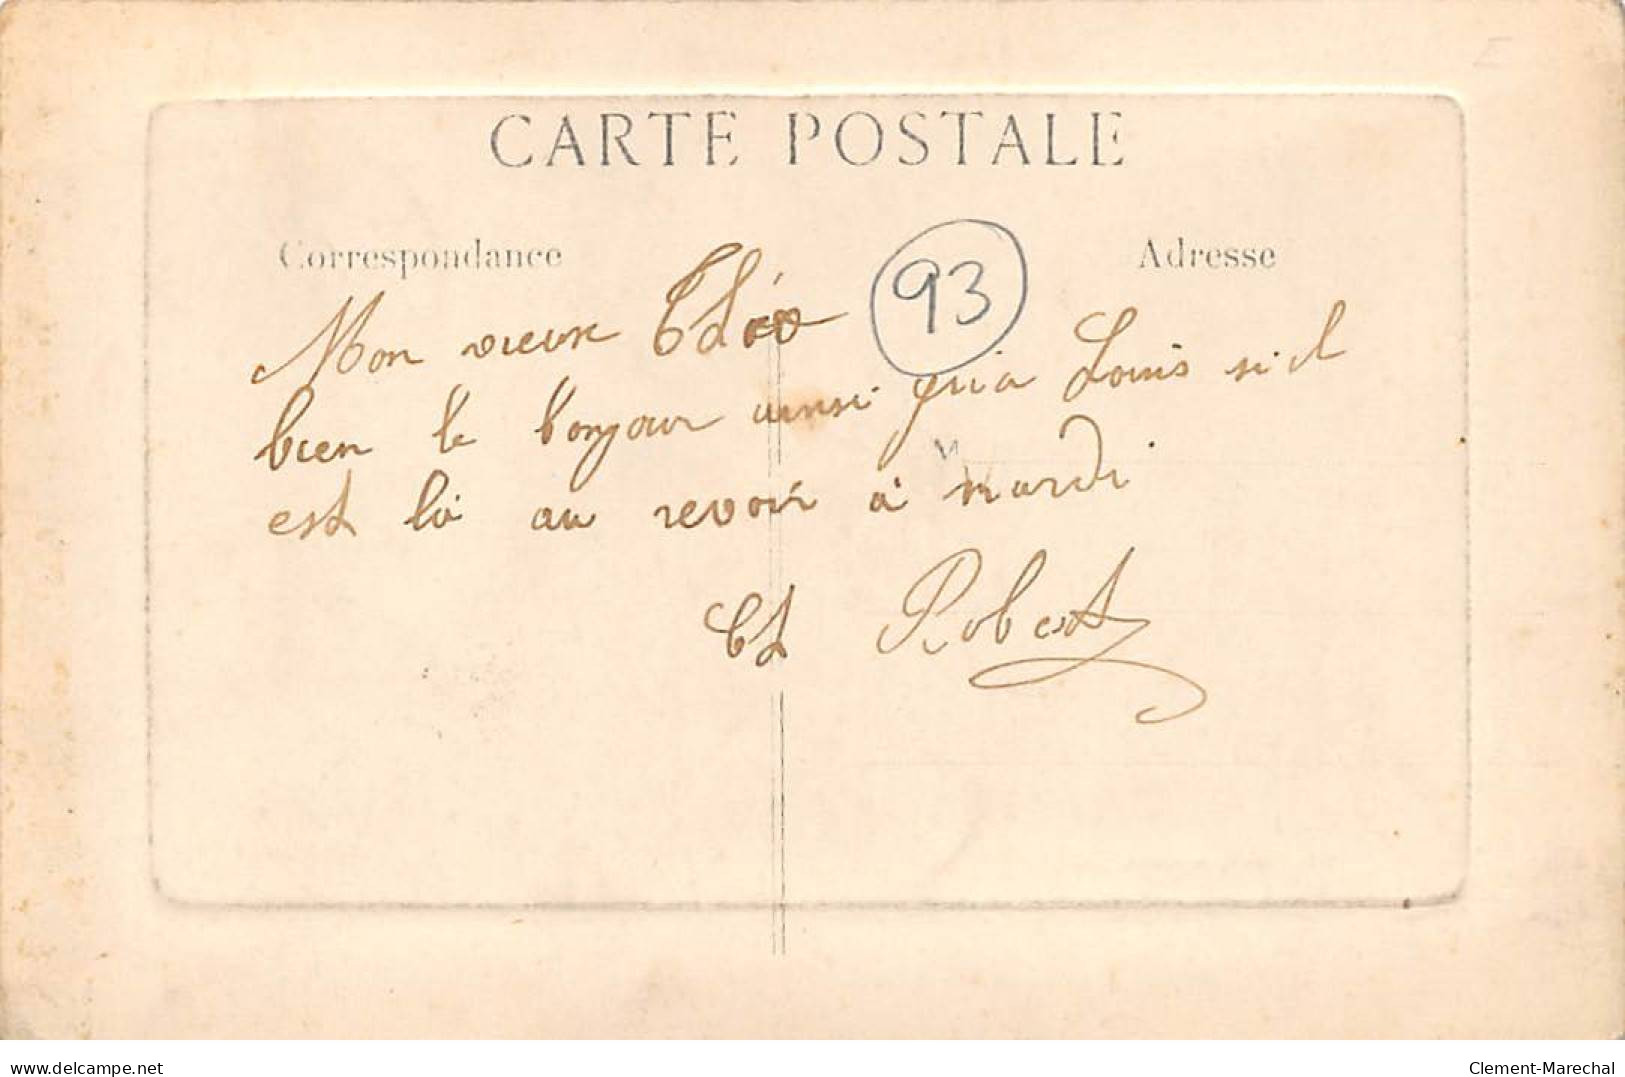 CARTE POSTALE
Correspondance
Adresse
93
Mon vieux Théo
bien le bonjour ainsi qu'a Louis si il
est là au revoir à mardi
Ch Robert
www.delcampe.net
Clement-Marechal